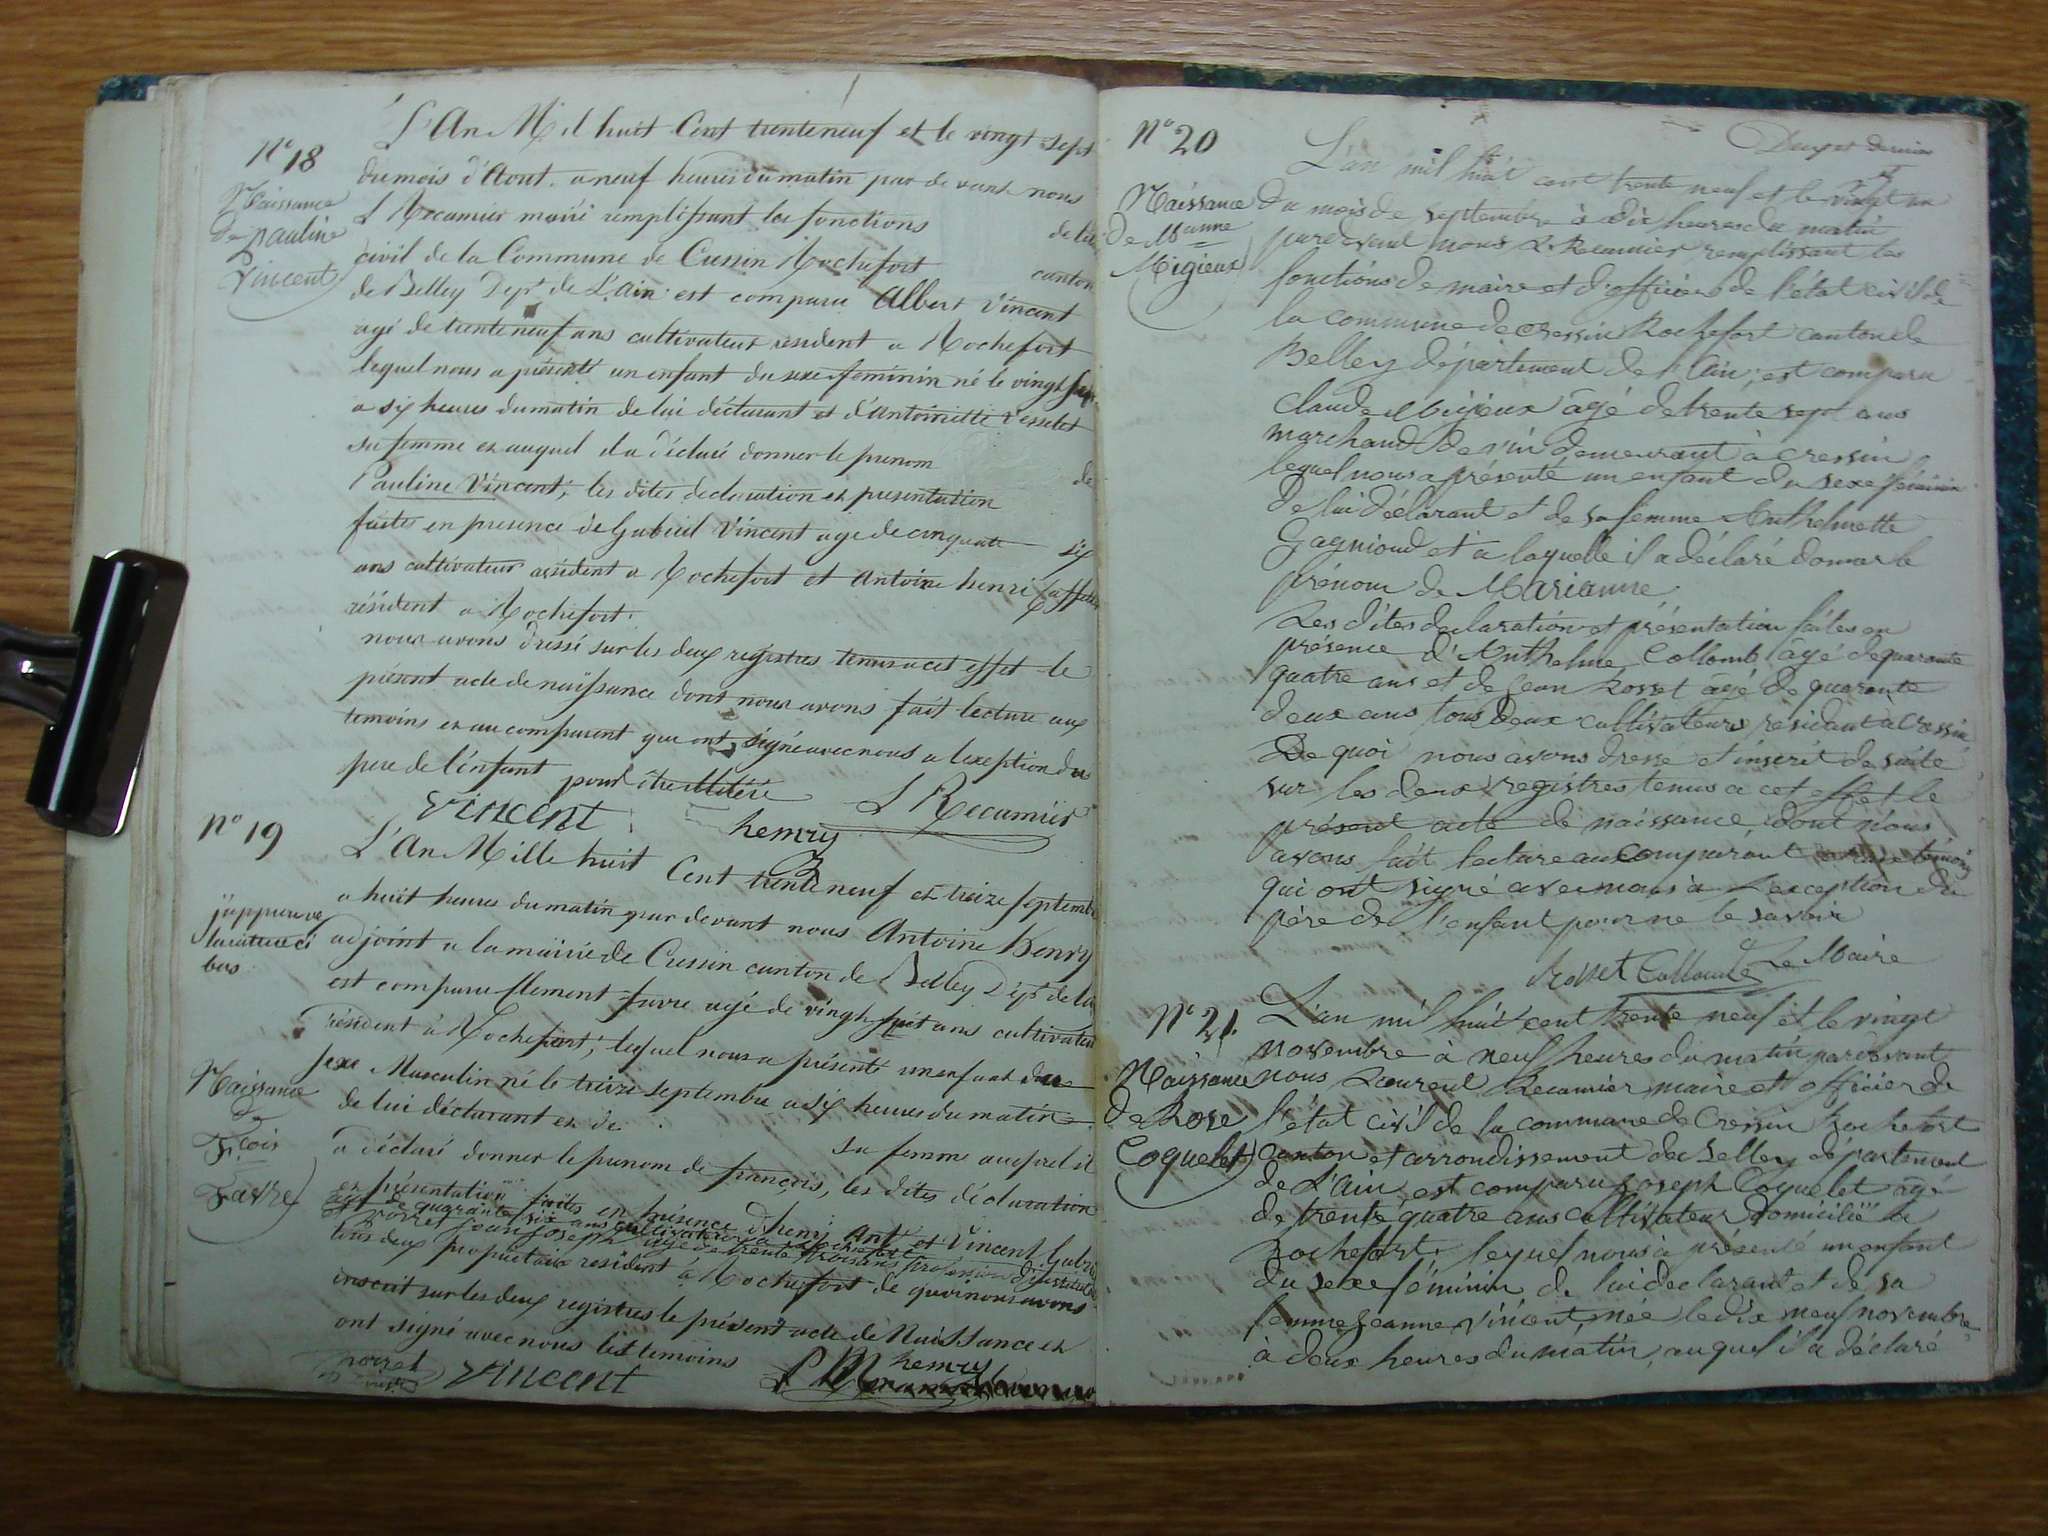 N° 18
Naissance
de pauline
Vincent
L'An Mil huit Cent trente neuf et le vingt sept
du mois d'Aout. a neuf heures du matin par de vant nous
L Recamier maire remplissant les fonctions de l'ét
civil de la Commune de Cressin Rochefort canton
de Belley Dept de L'ain est comparu Albert Vincent
agé de trente neuf ans cultivateur résident a Rochefort
lequel nous a présenté un enfant du sexe féminin né le vingt sept
a six heures du matin de lui déclarant et d'Antoinette
sa femme et auquel il a déclaré donner le prenom de
Pauline Vincent, les dites declaration et presentation
faites en presence de Gabriel Vincent age de cinquante six
ans cultivateur résident a Rochefort et Antoine henri
résident a Rochefort.
nous avons dressé sur les deux registres tenus a cet effet le
présent acte de naissance dont nous avons fait lecture aux
temoins et au comparent qui ont signé avec nous a l'exeption du
pere de l'enfant pour être illitéré
Vincent hemry L Recamier
N° 19
j'approuve
la rature ci
bas
Naissance
de
F.çois
Favre
L'An Mille huit Cent trente neuf et treize septemb
a huit heures du matin par devant nous Antoine Henry
adjoint a la mairie de Cressin canton de Belley Dept de l'a
est comparu Clément favre agé de vingt sept ans cultivateu
résident à Rochefort, lequel nous a présenté un enfant du
sexe Masculin né le treize septembre a six heures du matin
de lui déclarant et de sa femme auquel il
a déclaré donner le prenom de françois, les dites déclaration
et présentation faites en présence d'henri Ant et Vincent Gabri
agé de quarante six ans cultivateur a Rochefort
et porret jean joseph agé de trente trois ans profession d'instituteur
tous deux propriétaire résident à Rochefort de quoi nous avons
inscrit sur les deux registres le présent acte de Naissance et
ont signé avec nous les temoins
porret Vincent hemry
N° 20
Naissance
de M anne
Migieux
Deux et dernier
L'an mil huit cent trente neuf et le vingt un
du mois de septembre à dix heures du matin
pardevant nous L. Recamier remplissant les
fonctions de maire et d'officier de l'état civil de
la commune de cressin Rochefort canton de
Belley département de l'Ain, est comparu
claude Migieux âgé de trente sept ans
marchand de vin demeurant à cressin
lequel nous a présenté un enfant du sexe féminin
de lui déclarant et de sa femme Anthelmette
Gagnioud et a laquelle il a déclaré donner le
prénom de Marianne
Les dites declaration et présentation faites en
présence d'Anthelme Collomb âgé de quarante
quatre ans et de Jean Rosset âgé de quarante
deux ans tous deux cultivateurs résidant à cressin
De quoi nous avons dressé et inscrit de suite
sur les deux registres tenus a cet effet le
présent acte de naissance, dont nous
avons fait lecture aux comparant témoins
qui ont signé avec nous a l'exception du
père de l'enfant pour ne le savoir
Rosset Le Maire
N° 21.
Naissance
de Rose
Coquelet
L'an mil huit cent trente neuf et le vingt
novembre à neuf heures du matin pardevant
nous Laurent Recamier maire et officier de
l'état civil de la commune de Cressin Rochefort
canton et arrondissement de Belley département
de L'Ain, est comparu Joseph Coquelet âgé
de trente quatre ans cultivateur domicilié à
Rochefort, lequel nous à présenté un enfant
du sexe féminin de lui declarant et de sa
femme Jeanne Vincent née le dix neuf novembre
à deux heures du matin, auquel il a déclaré